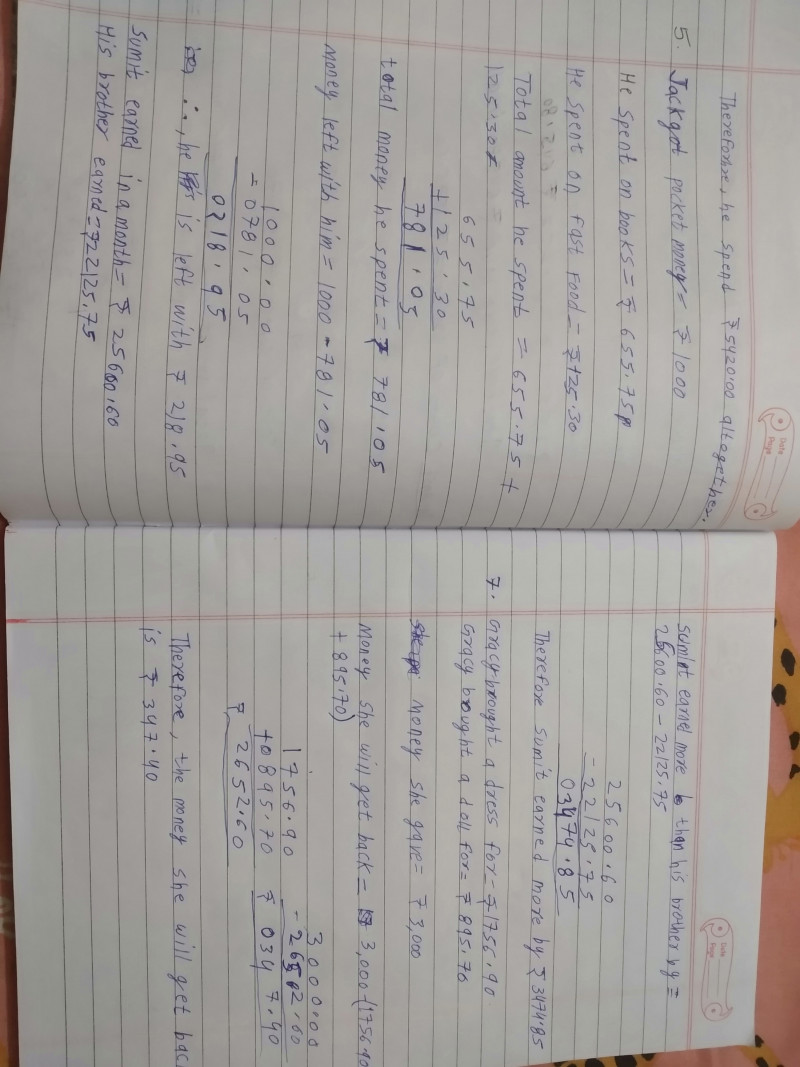 Date
Page
Therefore, he spend ₹5420.00 altogether.
5. Jackgot pocket money = ₹ 1000
He spent on books = ₹ 655.75
He spent on fast food = ₹125.30
Total amount he spent = 655.75 +
125.30
655.75
+125.30
781.05
total money he spent = ₹ 781.05
Money left with him = 1000 - 781.05
1000.00
- 0781.05
0218.95
∴, he is left with ₹ 218.95
Sumit earned in a month = ₹ 25600.60
His brother earned = ₹22125.75
Date
Page
Sumit earned more than his brother by =
25600.60 - 22125.75
25600.60
- 22125.75
03474.85
Therefore sumit earned more by ₹ 3474.85
7. Gracy brought a dress for = ₹1756.90
Gracy brought a doll for = ₹ 895.70
Money she gave = ₹ 3,000
Money she will get back = 3,000 - (1756.90
+ 895.70)
1756.90
+0895.70
₹ 2652.60
3000.00
- 2652.60
₹ 0347.40
Therefore, the money she will get bac
is ₹ 347.40